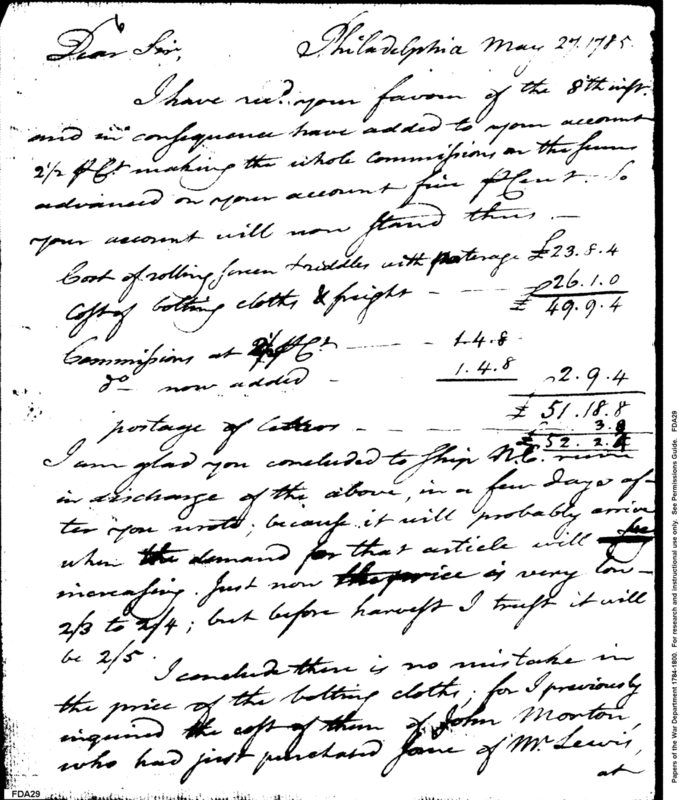 Dear Sir, Philadelphia May 27. 1785.
I have recd. your favour of the 8th inst.
and in consequence have added to your account
2 1/2 ⅌ Ct. making the whole commissions on the sums
advanced on your account five ⅌ Cent. So
your account will now stand thus —
Cost of rolling screen & riddles with porterage £23.8.4
Cost of bolting cloths & freight — — £26.1.0
£ 49.9.4
Commissions at 2 1/2 ⅌ Ct. — — 1.4.8
do. now added — 1.4.8 2.9.4
£ 51.18.8
postage of Letters — — — 3.8
£ 52.2.4
I am glad you concluded to ship N.E. rum
in discharge of the above, in a few days af-
ter you wrote; because it will probably arrive
when the demand for that article will
increasing. Just now the price is very low —
2/3 to 2/4; but before harvest I trust it will
be 2/5.
I conclude there is no mistake in
the price of the bolting cloths; for I previously
inquired the cost of them of John Morton,
who had just purchased some of Mr. Lewis,
at
FDA29
Papers of the War Department 1784-1800. For research and instructional use only. See Permissions Guide. FDA29